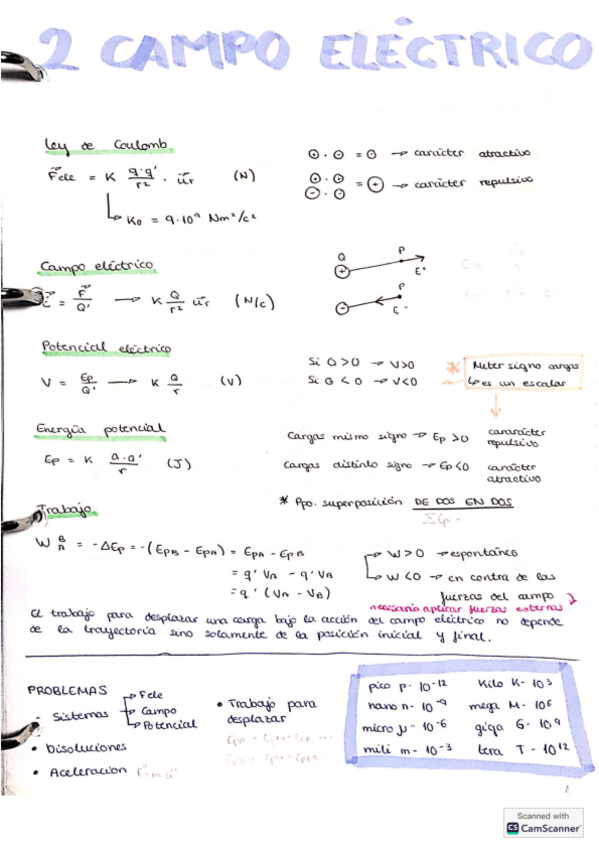 2 CAMPO ELÉCTRICO
Ley de Coulomb
F⃗ele = K q·q' / r² · u⃗r (N)
↳ K₀ = 9·10⁹ Nm²/c²
⊕ · ⊖ = ⊖ → carácter atractivo
⊕ · ⊕
⊖ · ⊖ = ⊕ → carácter repulsivo
Campo eléctrico
= F⃗ / Q' → K Q / r² u⃗r (N/c)
Q P
+ E⁺
P
- E⁻
Potencial eléctrico
V = Ep / Q' → K Q / r (V)
Si Q > 0 → V>0
Si Q < 0 → V<0
* Meter signo cargas
↳ es un escalar
Energía potencial
Ep = K Q·Q' / r (J)
Cargas mismo signo → Ep >0 cararácter repulsivo
Cargas distinto signo → Ep <0 carácter atractivo
* Ppo. superposición DE DOS EN DOS
ΣEp.
Trabajo
W B A = -ΔEp = -(EpB - EpA) = EpA - EpB
= q' VA - q' VB
= q' (VA - VB)
W>0 → espontáneo
W<0 → en contra de las
fuerzas del campo
necesario aplicar fuerzas externas
El trabajo para desplazar una carga bajo la acción del campo eléctrico no depende
de la trayectoria sino solamente de la posición inicial y final.
PROBLEMAS
- Sistemas → Fele
→ Campo
→ Potencial
• Disoluciones
• Aceleración F=m·a
• Trabajo para
desplazar
pico p - 10⁻¹²
nano n - 10⁻⁹
micro μ - 10⁻⁶
mili m - 10⁻³
Kilo K - 10³
mega M - 10⁶
giga G - 10⁹
tera T - 10¹²
1
Scanned with
CS CamScanner